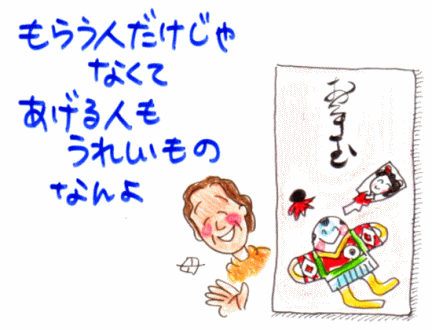 もらう人だけじゃ
なくて
あげる人も
うれしいもの
なんよ